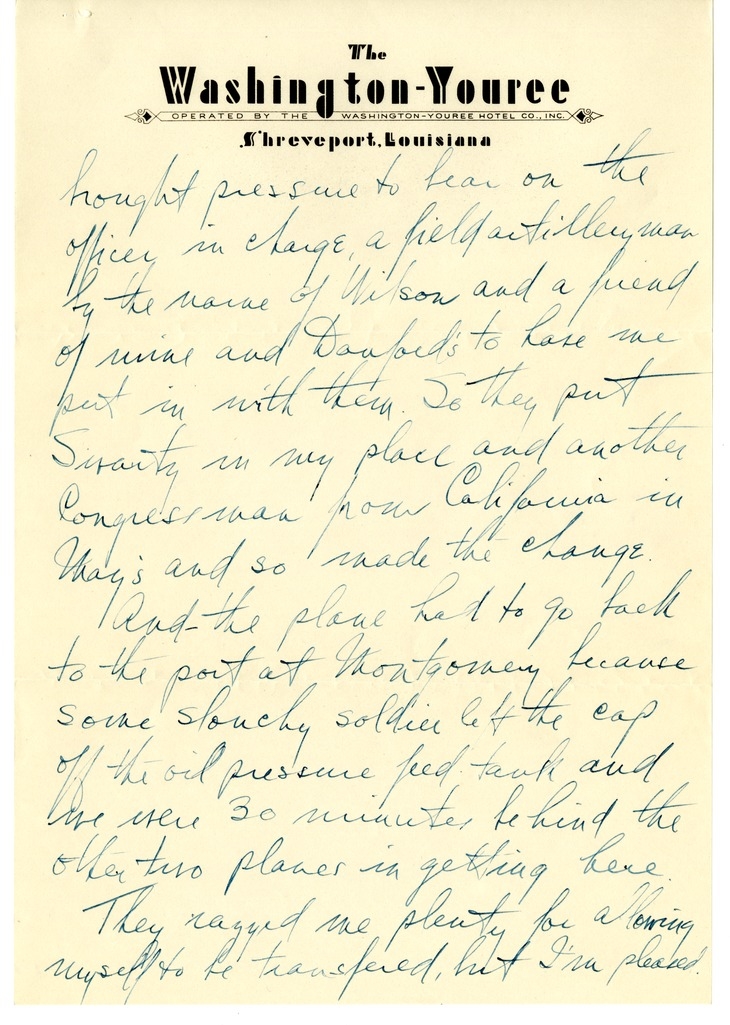 The
Washington-Youree
OPERATED BY THE WASHINGTON-YOUREE HOTEL CO., INC.
Shreveport, Louisiana
brought pressure to bear on the
officer in charge, a field artilleryman
by the name of Wilson and a friend
of mine and Danford's to have me
put in with them. So they put
Swarty in my place and another
Congressman from California in
May's and so made the change.
And the plane had to go back
to the port at Montgomery because
some slouchy soldier left the cap
off the oil pressure feed tank and
we were 30 minutes behind the
other two planes in getting here.
They razzed me plenty for allowing
myself to be transfered, but I'm pleased.